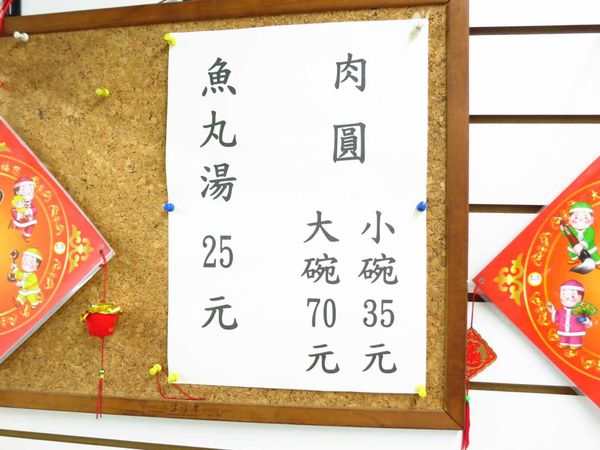 肉圓
小碗35元
大碗70元
魚丸湯 25元